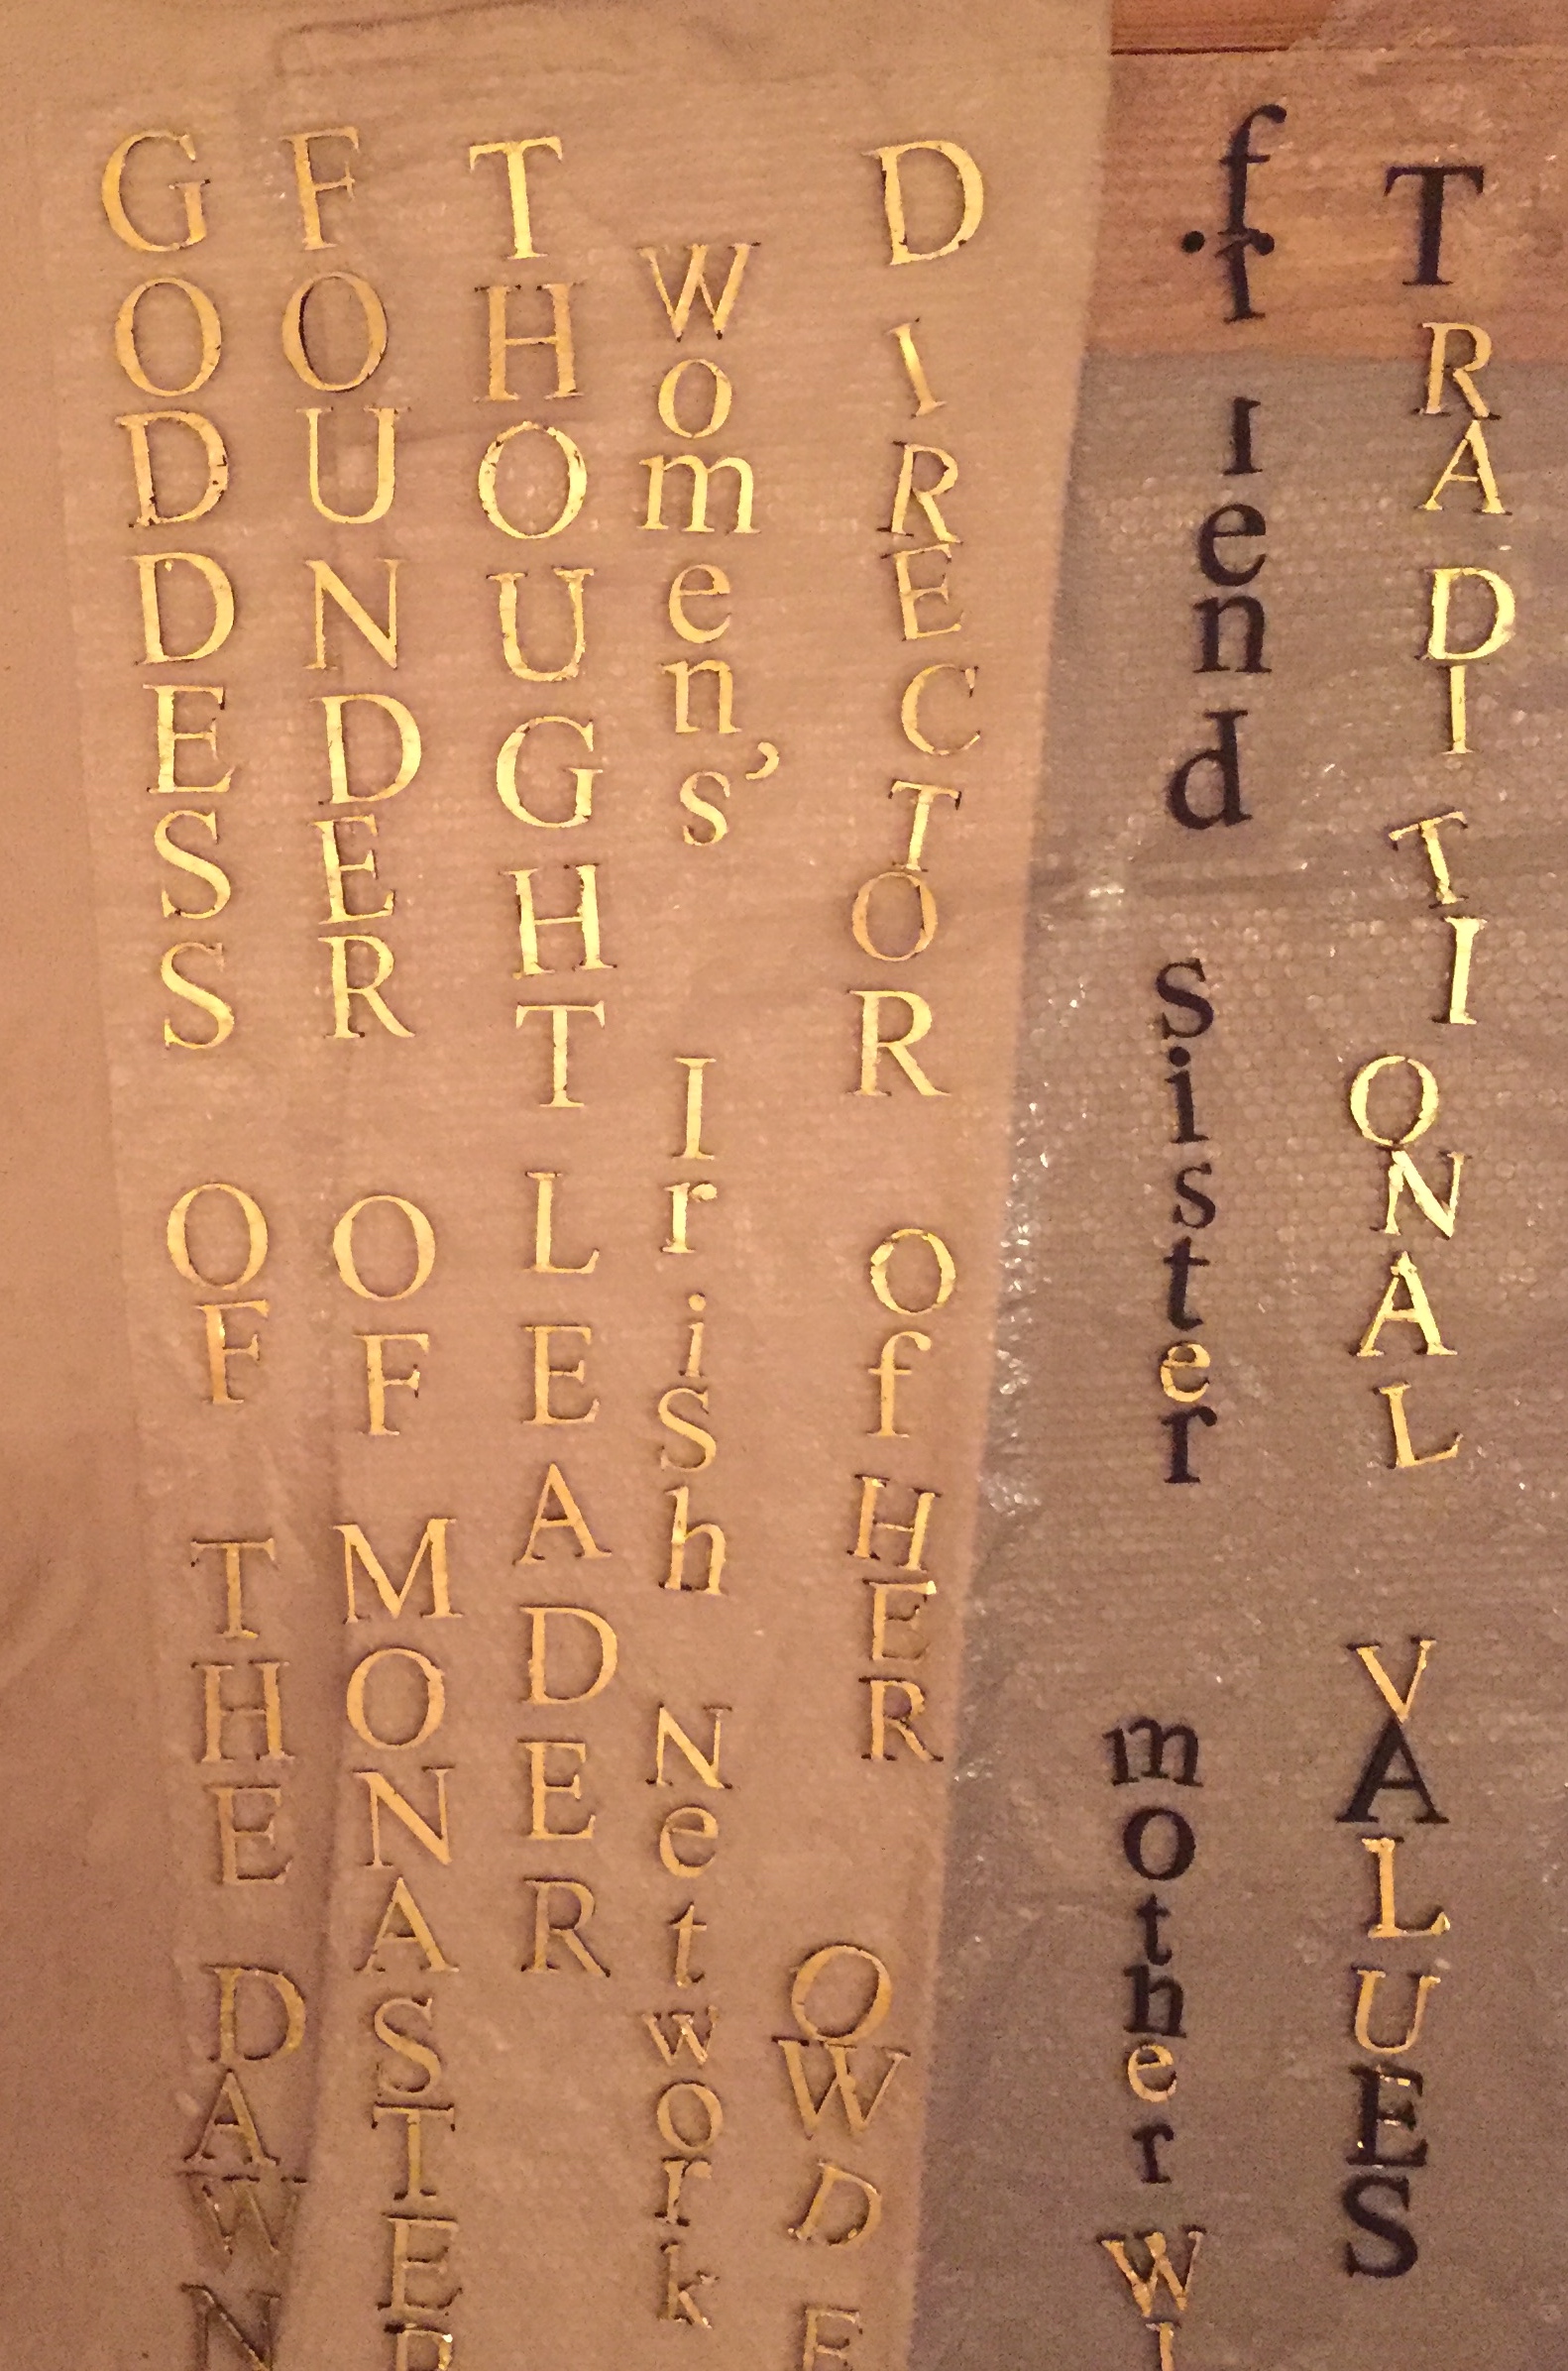 GODDESS OF THE DAWN
FOUNDER OF MONASTER
THOUGHT LEADER
women's IriSh Network
DIRECTOR Of HER OWD E
friend sister mother WI
TRADITIONAL VALUES